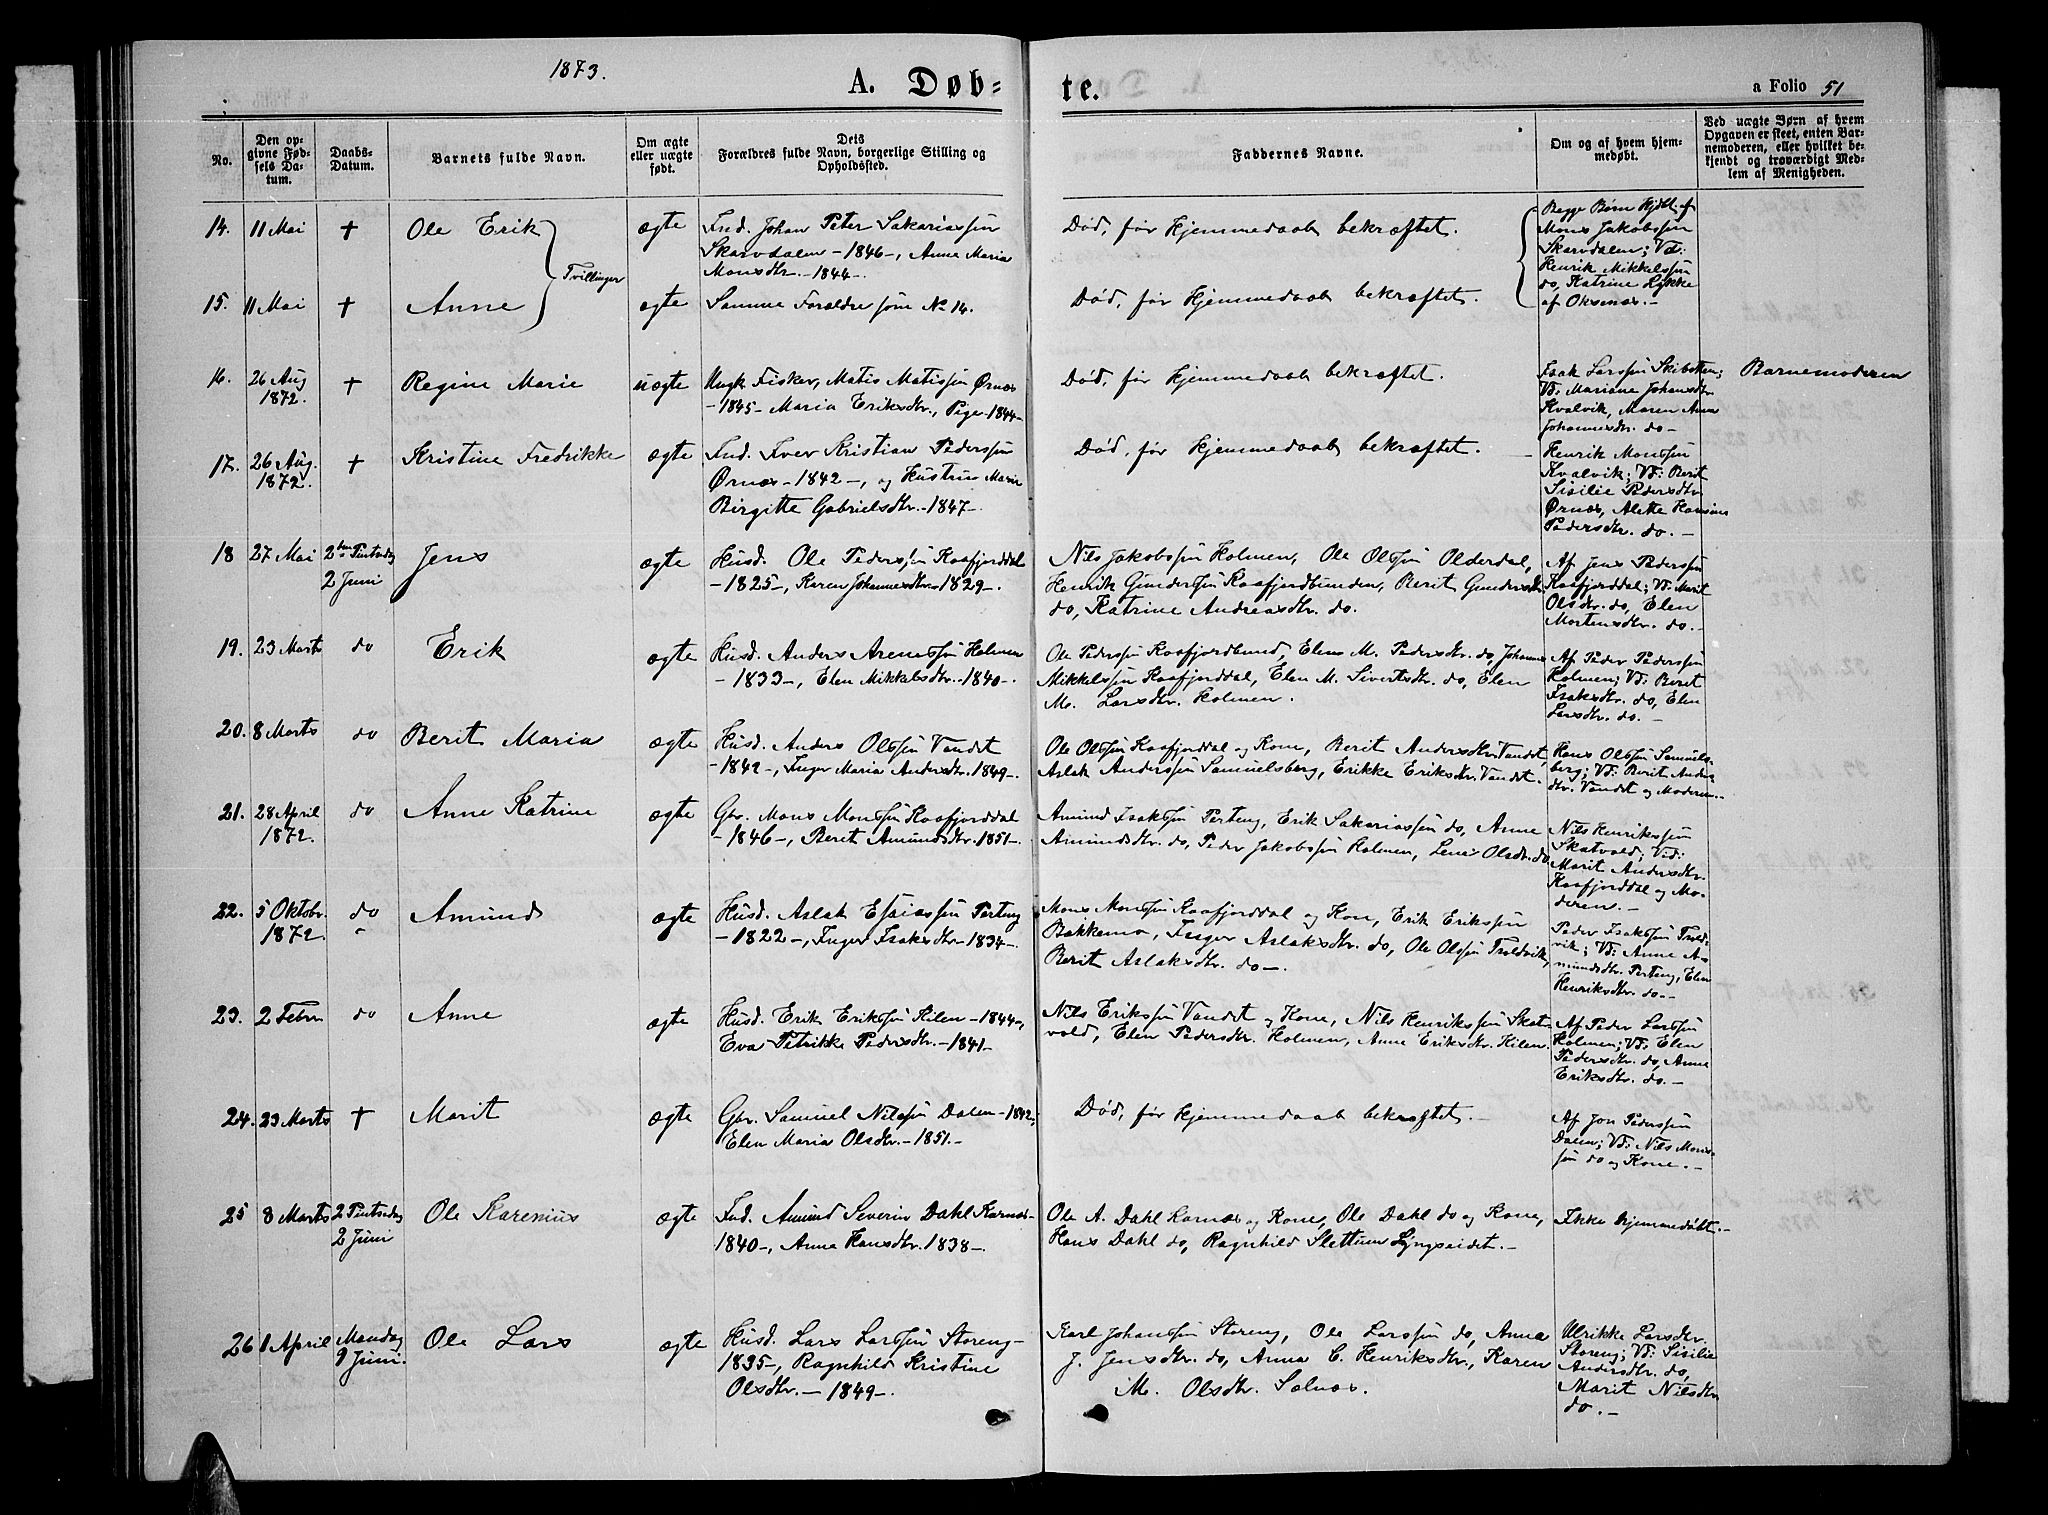 1873.
A. Døb=
te.
a Folio 51
No.
Den op-
givne Fød-
sels Da-
tum.
Daabs-
Datum.
Barnets fulde Navn.
Om ægte
eller uægte
født.
Dets
Forældres fulde Navn, borgerlige Stilling og
Opholdssted.
Faddernes Navne.
Om og af hvem hjem-
medøbt.
Ved uægte Børn af hvem
Opgaven er skeet, enten Bar-
nemoderen, eller hvilket be-
kjendt og troværdigt Med-
lem af Menigheden.
14. 11 Mai † Ole Erik
Tvillinger
ægte
Ind. Johan Peter Sakariassøn
Skarvdalen - 1846 -, Anne Maria
Monsdtr. - 1844 -
Død, før Hjemmedaab bekræftet.
Begge Børn Hjdbt. af
Mons Jakobssøn
Skarvdalen; Vd:
Henrik Mikkelssøn
do, Katrine Lykke
af Oksenæs. -
15. 11 Mai † Anne
ægte
Samme Forældre som No 14.
Død, før Hjemmedaab bekræftet.
16. 26 Aug
1872. † Regine Marie
uægte
Ungk. Fisker, Matis Matissøn Ørnæs
- 1845 - Maria Eriksdtr., Pige - 1844 -
Død, før Hjemmedaab bekræftet.
Isak Larssøn Skibotten;
Vd: Mariane Johansdtr
Kvalvik, Maren Anna
Johannesdtr. do -
Barnemoderen
17. 26 Aug.
1872. † Kristine Fredrikke
ægte
Ind. Iver Kristian Pederssøn
Ørnæs - 1842 -, og Hustru Maria
Birgitte Gabrielsdtr. - 1847 -.
Død, før Hjemmedaab bekræftet. -
Henrik Monssøn
Kvalvik; Vd: Berit
Sisilie Pedersdtr.
Ørnæs, Alette Hansine
Pedersdtr. do. -
18 27 Mai 2den Pintsedag
2 Juni
Jens
ægte
Husd. Ole Pederssøn Kaafjorddal
- 1825 -, Karen Johannesdtr. - 1829 -.
Nils Jakobssøn Holmen, Ole Olssøn Olderdal,
Henrik Gunderssøn Kaafjordbunden, Berit Gundersdtr.
do, Katrine Andreasdtr. do.
Af Jens Pederssøn
Kaafjorddal; Vd: Marit
Olsdtr. do, Elen
Mortensdtr. do. -
19. 23 Marts do Erik
ægte
Husd. Anders Arenssøn Holmen
- 1833 -, Elen Mikkelsdtr. - 1840 -.
Ole Pederssøn Kaafjordbund, Elen M. Pedersdtr. do, Johannes
Mikkelssøn Kaafjorddal, Elen M. Sivertsdtr. do, Elen
M. Larsdtr. Holmen.
Af Peder Pederssøn
Holmen; Vd: Berit
Isaksdtr. do, Elen
Larsdtr. do. -
20. 8 Marts do Berit Maria
ægte
Husd. Anders Olssøn Vandet
- 1842 -, Inger Maria Andersdtr. 1849 -.
Ole Olssøn Kaafjorddal og Kone, Berit Andersdtr. Vandet,
Aslak Anderssøn Samuelsberg, Erikke Eriksdtr. Vandet.
Hans Olssøn Samuels-
berg; Vd: Berit Anders-
dtr. Vandet og Moderen. -
21. 28 April
1872. do Anne Katrine
ægte
Gbr. Mons Monssøn Kaafjorddal
- 1846 -, Berit Amundsdtr. 1851 -.
Amund Isakssøn Perteng, Erik Sakariassøn do, Anne
Amundsdtr. do, Peder Jakobssøn Holmen, Lene Olsdtr. do
Nils Henrikssøn
Skatvold; Vid:
Marit Andersdtr.
Kaafjorddal og Mo-
deren. -
22. 5 Oktobr.
1872. do Amund
ægte
Husd. Aslak Esaiassøn Perteng
- 1822 -, Inger Isaksdtr. - 1834 -.
Mons Monssøn Kaafjorddal og Kone, Erik Erikssøn
Bakkemo, Inger Aslaksdtr. do, Ole Olssøn Troldvik,
Berit Aslaksdtr. do -.
Peder Isakssøn Trold-
vik; Vd: Anne A-
mundsdtr. Perteng, Elen
Henriksdtr. do. -
23. 2 Febr do Anne
ægte
Husd. Erik Erikssøn Hilen - 1844 -,
Eva Petrikke Pedersdtr. - 1841 -
Nils Erikssøn Vandet og Kone, Nils Henrikssøn Skat-
vold, Elen Pedersdtr. Holmen, Anne Eriksdtr. Hilen.
Af Peder Larssøn
Holmen; Vd: Elen
Pedersdtr. do, Anne
Eriksdtr. do. -
24. 23 Marts † Marit
ægte
Gbr. Samuel Nilssøn Dalen - 1842,
Elen Maria Olsdtr. - 1851. -
Død, før Hjemmedaab bekræftet. -
Af Jon Pederssøn
Dalen; Vd: Nils Mons-
søn do og Kone. -
25 8 Marts 2 Pintsedag
2 Juni
Ole Karenius
ægte
Ind. Amund Severin Dahl Karnæs -
1840 -, Anne Hansdtr. 1838 -.
Ole A. Dahl Karnæs og Kone, Ole Dahl do og Kone,
Hans Dahl do, Ragnhild Slettum Lyngseidet. -
Ikke hjemmedøbt. -
26 1 April Mandag
9 Juni.
Ole Lars
ægte
Husd. Lars Larssøn Storeng -
1835 -, Ragnhild Kristine
Olsdtr. - 1849 -.
Karl Johanssøn Storeng, Ole Larssøn do, Anna
J. Jensdtr. do, Anna C. Henriksdtr., Karen
M. Olsdtr. Solnæs.
Ulrikke Larsdtr.
Storeng; Vd: Sisilie
Andersdtr. do,
Marit Nilsdtr.
do. -